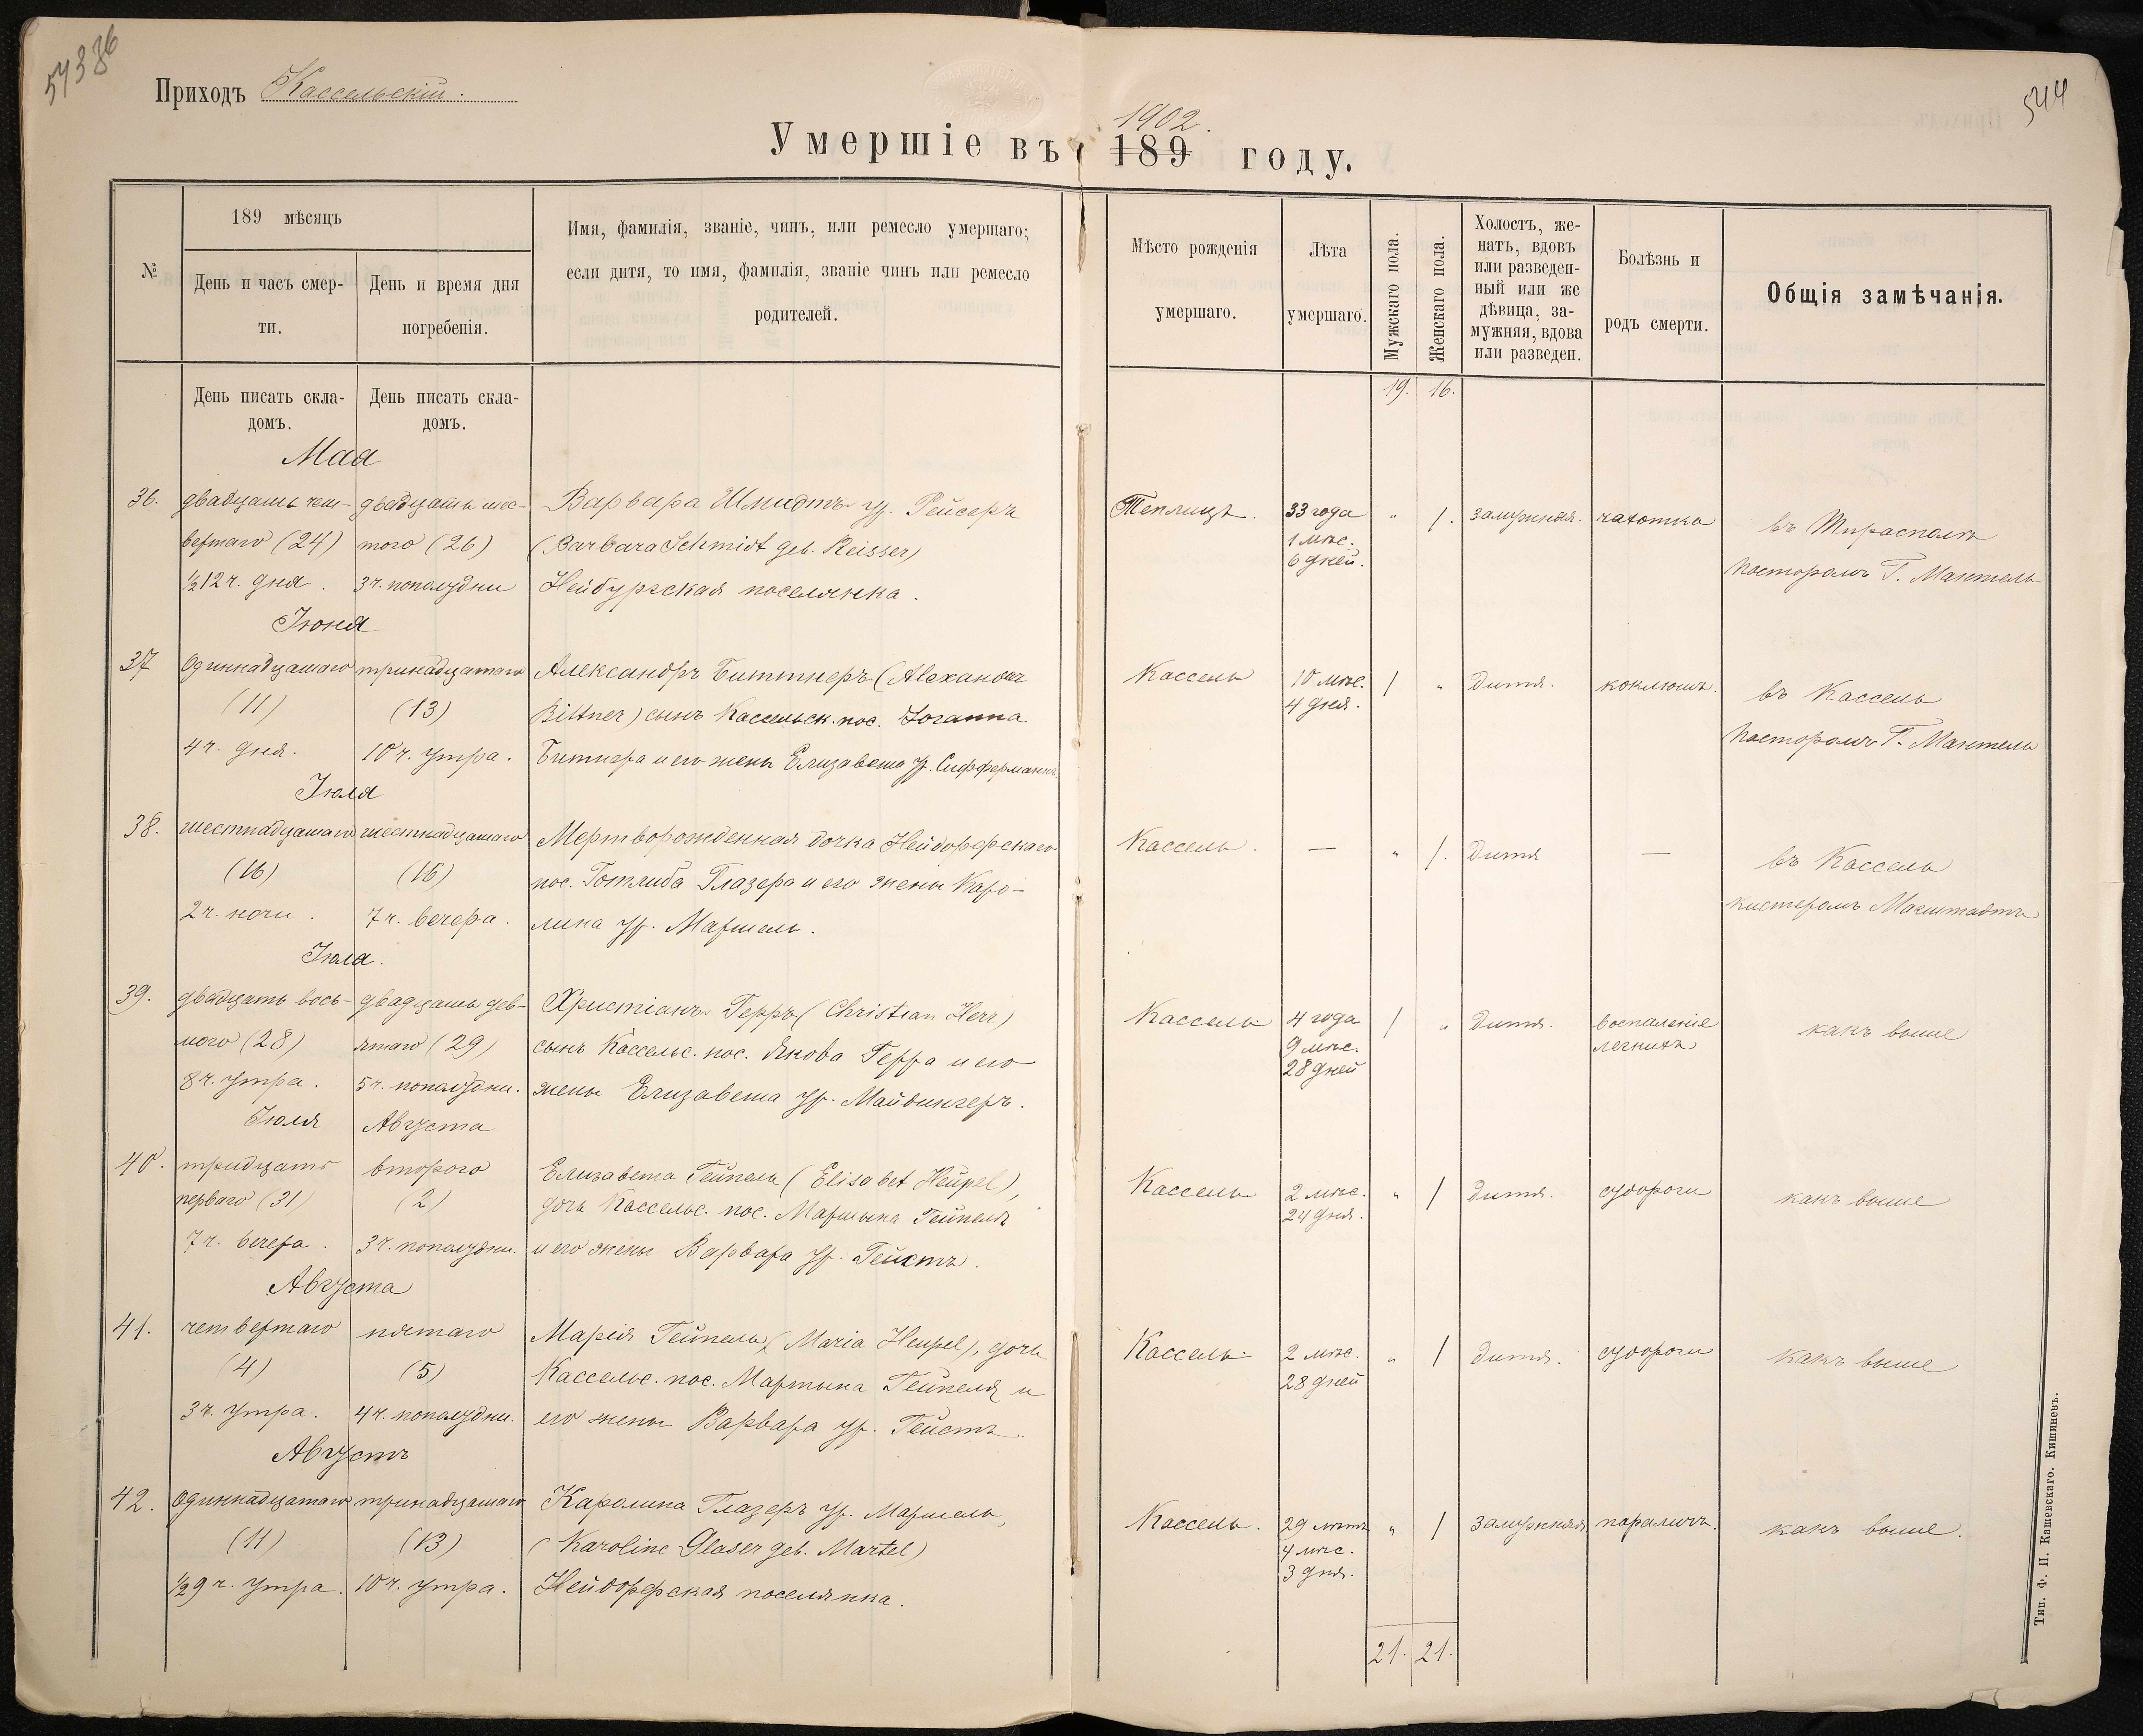 57386
Приходъ Кассельскій.
544
1902.
Умершіе въ 189 году.
№
189 мѣсяцъ
День и часъ смер-
ти.
День и время дня
погребенія.
Имя, фамилія, званіе, чинъ, или ремесло умершаго;
если дитя, то имя, фамилія, званіе чинъ или ремесло
родителей.
Мѣсто рожденія
умершаго.
Лѣта
умершаго.
Мужскаго пола.
Женскаго пола.
Холостъ, же-
натъ, вдовъ
или разведен-
ный или же
дѣвица, за-
мужняя, вдова
или разведен.
Болѣзнь и
родъ смерти.
Общія замѣчанія.
День писать скла-
домъ.
День писать скла-
домъ.
19. 16.
Мая
36. двадцать чет- двадцать шес- Варвара Шмидтъ ур. Рейсеръ Теплицъ. 33 года " 1. замужняя. чахотка въ Тирасполѣ
вертаго (24) того (26) (Barbara Schmidt geb. Reisser) 1 мѣс.
6 дней.
½12 ч. дня. 3 ч. пополудни Нейбургская поселянка. Пасторомъ Г. Мантель
Іюня
37 Одиннадцатаго тринадцатаго Александръ Биттнеръ (Alexander Кассель 10 мѣс. 1 " Дитя. коклюшъ. въ Кассель
4 дня.
(11) (13) Bittner) сынъ Кассельск. пос. Іоганна
4 ч. дня. 10 ч. утра. Битнера и его жены Елизавета ур. Сифферманнъ. Пасторомъ Г. Мантель
Іюля
38. шестнадцатаго шестнадцатаго Мертворожденная дочка Нейдорфскаго Кассель. — " 1. Дитя — въ Кассель
(16) (16) пос. Готлиба Глазера и его жены Каро-
2 ч. ночи. 7 ч. вечера. лина ур. Мартель. кистеромъ Магштадтъ
Іюля.
39. двадцать вось- двадцать дев- Христіанъ Герръ (Christian Herr) Кассель 4 года 1 " Дитя. воспаленіе какъ выше
мого (28) ятаго (29) сынъ Кассельс. пос. Якова Герра и его 9 мѣс. легкихъ
28 дней
8 ч. утра. 5 ч. пополудни. жены Елизавета ур. Майдингеръ.
Іюля Августа
40. тридцать второго Елизавета Гейпель (Elisabet Heupel), Кассель 2 мѣс. " 1 Дитя. судороги какъ выше
24 дня.
перваго (31) (2) дочь Кассельс. пос. Мартына Гейпеля
7 ч. вечера. 3 ч. пополудни. и его жены Варвара ур. Гейстъ.
Августа
41. четвертаго пятаго Марія Гейпель, (Maria Heupel), дочь Кассель 2 мѣс. " 1 Дитя. судороги какъ выше
28 дней
(4) (5) Кассельс. пос. Мартына Гейпеля и
3 ч. утра. 4 ч. пополудни. его жены Варвара ур. Гейстъ.
Августъ
42. Одиннадцатаго тринадцатаго Каролина Глазеръ ур. Мартель, Кассель. 29 лѣтъ " 1 замужняя параличъ. какъ выше.
4 мѣс.
3 дня.
(11) (13) (Karoline Glaser geb. Martel)
½9 ч. утра. 10 ч. утра. Нейдорфская поселянка.
21. 21.
Тип. Ф. П. Кашевскаго. Кишиневъ.